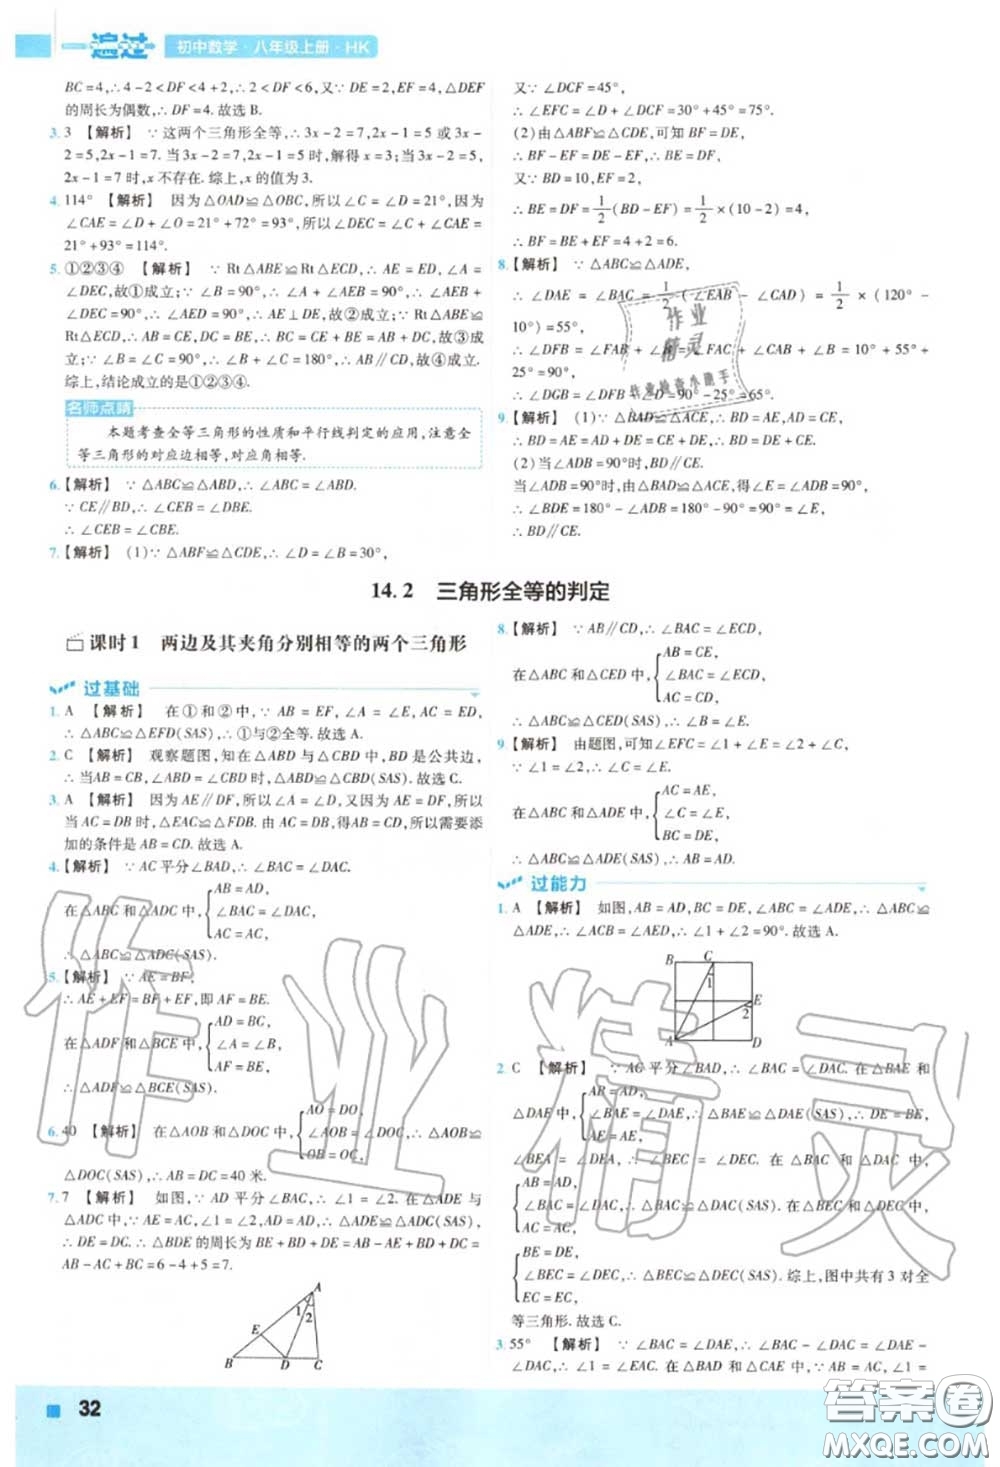 一遍过 初中数学·八年级上册·HK
BC=4,∴4-2<DF<4+2,∴2<DF<6,又∵DE=2,EF=4,△DEF
的周长为偶数,∴DF=4.故选B.
3. 3 【解析】 ∵这两个三角形全等,∴3x-2=7,2x-1=5或3x-
2=5,2x-1=7.当3x-2=7,2x-1=5时,解得x=3;当3x-2=5,
2x-1=7时,x不存在.综上,x的值为3.
4. 114° 【解析】 因为△OAD≌△OBC,所以∠C=∠D=21°,所以
∠CAE=∠D+∠O=21°+72°=93°,所以∠DEC=∠C+∠CAE=
21°+93°=114°.
5. ①②③④ 【解析】 ∵Rt△ABE≌Rt△ECD,∴AE=ED,∠A=
∠DEC,故①成立;∵∠B=90°,∴∠A+∠AEB=90°,∴∠AEB+
∠DEC=90°,∴∠AED=90°,∴AE⊥DE,故②成立;∵Rt△ABE≌
Rt△ECD,∴AB=CE,DC=BE,∴BC=CE+BE=AB+DC,故③
成立;∵∠B=∠C=90°,∴∠B+∠C=180°,∴AB∥CD,故④成立.
综上,结论成立的是①②③④.
名师点睛
本题考查全等三角形的性质和平行线判定的应用,注意全
等三角形的对应边相等,对应角相等.
6. 【解析】 ∵△ABC≌△ABD,∴∠ABC=∠ABD.
∵CE∥BD,∴∠CEB=∠DBE.
∴∠CEB=∠CBE.
7. 【解析】 (1)∵△ABF≌△CDE,∴∠D=∠B=30°,
又∵∠DCF=45°,
∴∠EFC=∠D+∠DCF=30°+45°=75°.
(2)由△ABF≌△CDE,可知BF=DE,
∴BF-EF=DE-EF,∴BE=DF.
又∵BD=10,EF=2,
∴BE=DF=1/2(BD-EF)=1/2×(10-2)=4,
∴BF=BE+EF=4+2=6.
8. 【解析】 ∵△ABC≌△ADE,
∴∠DAE=∠BAC=1/2(∠EAB-∠CAD)=1/2×(120°-
10°)=55°,
∴∠DFB=∠FAB+∠B=∠FAC+∠CAB+∠B=10°+55°+
25°=90°,
∴∠DGB=∠DFB-∠D=90°-25°=65°.
9. 【解析】 (1)∵△BAD≌△ACE,∴BD=AE,AD=CE,
∴BD=AE=AD+DE=CE+DE,∴BD=DE+CE.
(2)当∠ADB=90°时,BD∥CE.
当∠ADB=90°时,由△BAD≌△ACE,得∠E=∠ADB=90°,
∴∠BDE=180°-∠ADB=180°-90°=90°=∠E,
∴BD∥CE.
14.2 三角形全等的判定
课时1 两边及其夹角分别相等的两个三角形
过基础
1. A 【解析】 在①和②中,∵AB=EF,∠A=∠E,AC=ED,
∴△ABC≌△EFD(SAS),∴①与②全等.故选A.
2. C 【解析】 观察题图,知在△ABD与△CBD中,BD是公共边,
∴当AB=CB,∠ABD=∠CBD时,△ABD≌△CBD.故选C.
3. A 【解析】 因为AE∥DF,所以∠A=∠D,又因为AE=DF,所以
当AC=DB时,△EAC≌△FDB.由AC=DB,得AB=CD,所以需要添
加的条件是AB=CD.故选A.
4. 【解析】 ∵AC平分∠BAD,∴∠BAC=∠DAC.
AB=AD,
在△ABC和△ADC中, ∠BAC=∠DAC,
AC=AC,
∴△ABC≌△ADC(SAS).
5. 【解析】 ∵AE=BF,
∴AE+EF=BF+EF,即AF=BE.
AD=BC,
在△ADF和△BCE中, ∠A=∠B,
AF=BE,
∴△ADF≌△BCE(SAS).
AO=DO,
6. 40 【解析】 在△AOB和△DOC中, ∠AOB=∠DOC, ∴△AOB≌
BO=CO,
△DOC(SAS),∴AB=DC=40米.
7. 7 【解析】 如图,∵AD平分∠BAC,∴∠1=∠2.在△ADE与
△ADC中,∵AE=AC,∠1=∠2,AD=AD,∴△ADE≌△ADC(SAS),
∴DE=DC,∴△BDE的周长为BE+BD+DE=AB-AE+BD+DC=
AB-AC+BC=6-4+5=7.
A
1 2
E
B D C
8. 【解析】 ∵AB∥CD,∴∠BAC=∠ECD.
AB=CE,
在△ABC和△CED中, ∠BAC=∠ECD,
AC=CD,
∴△ABC≌△CED(SAS),∴∠B=∠E.
9. 【解析】 由题图,可知∠EFC=∠1+∠E=∠2+∠C.
∵∠1=∠2,∴∠E=∠C.
AC=AE,
在△ABC和△ADE中, ∠C=∠E,
BC=DE,
∴△ABC≌△ADE(SAS),∴AB=AD.
过能力
1. A 【解析】 如图,AB=AD,BC=DE,∠ABC=∠ADE,∴△ABC≌
△ADE,∴∠ACB=∠AED,∴∠1+∠2=90°.故选A.
B C
1
E
2
A D
2. C 【解析】 ∵AC平分∠BAD,∴∠BAC=∠DAC.在△BAE和
AB=AD,
△DAE中, ∠BAE=∠DAE, ∴△BAE≌△DAE(SAS),∴DE=BE,
AE=AE,
∠BEA=∠DEA,∴∠BEC=∠DEC.在△BAC和△DAC中,
AB=AD,
∠BAC=∠DAC, ∴△BAC≌△DAC(SAS).在△BEC和△DEC中,
AC=AC,
BE=DE,
∠BEC=∠DEC, ∴△BEC≌△DEC(SAS).综上,图中共有3对全
EC=EC,
等三角形.故选C.
3. 55° 【解析】 ∵∠BAC=∠DAE,∴∠BAC-∠DAC=∠DAE-
∠DAC,∴∠1=∠EAC.在△BAD和△CAE中,∵AB=AC,
32
作业
精灵
作业检查小助手
作业精灵
答案圈
MXQE.COM